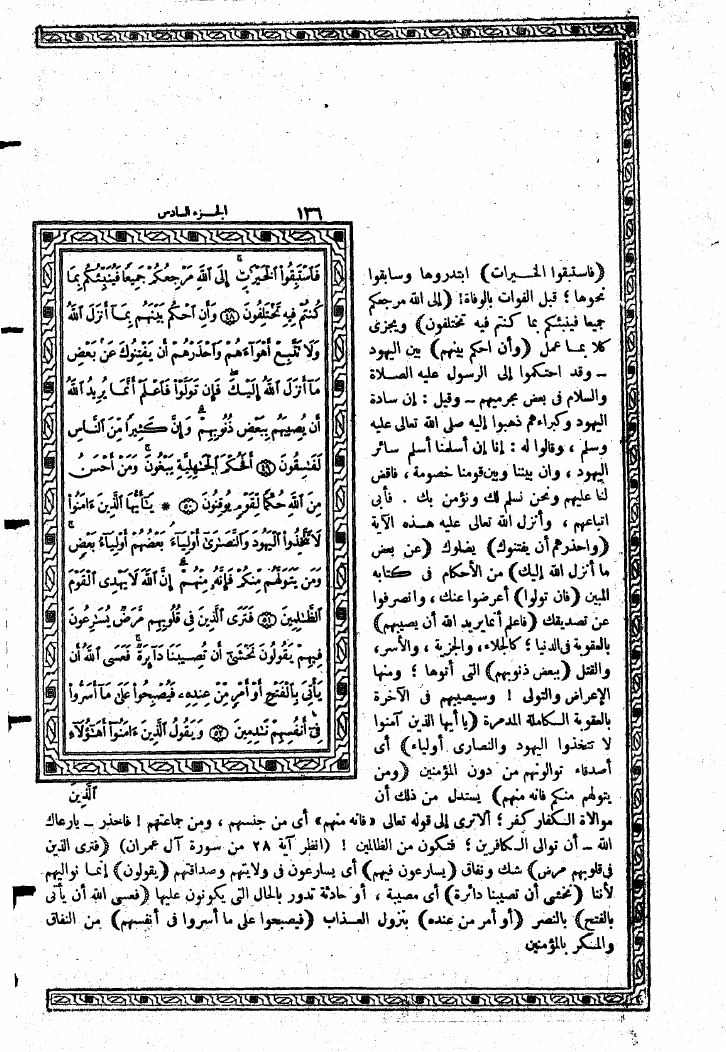 ١٣٦ الجزء السادس
فَٱسْتَبِقُوا۟ ٱلْخَيْرَٰتِ ۚ إِلَى ٱللَّهِ مَرْجِعُكُمْ جَمِيعًا فَيُنَبِّئُكُم بِمَا
كُنتُمْ فِيهِ تَخْتَلِفُونَ ٤٨ وَأَنِ ٱحْكُم بَيْنَهُم بِمَآ أَنزَلَ ٱللَّهُ
وَلَا تَتَّبِعْ أَهْوَآءَهُمْ وَٱحْذَرْهُمْ أَن يَفْتِنُوكَ عَنۢ بَعْضِ
مَآ أَنزَلَ ٱللَّهُ إِلَيْكَ ۖ فَإِن تَوَلَّوْا۟ فَٱعْلَمْ أَنَّمَا يُرِيدُ ٱللَّهُ
أَن يُصِيبَهُم بِبَعْضِ ذُنُوبِهِمْ ۗ وَإِنَّ كَثِيرًا مِّنَ ٱلنَّاسِ
لَفَٰسِقُونَ ٤٩ أَفَحُكْمَ ٱلْجَٰهِلِيَّةِ يَبْغُونَ ۚ وَمَنْ أَحْسَنُ
مِنَ ٱللَّهِ حُكْمًا لِّقَوْمٍ يُوقِنُونَ ٥٠ * يَٰٓأَيُّهَا ٱلَّذِينَ ءَامَنُوا۟
لَا تَتَّخِذُوا۟ ٱلْيَهُودَ وَٱلنَّصَٰرَىٰٓ أَوْلِيَآءَ ۘ بَعْضُهُمْ أَوْلِيَآءُ بَعْضٍ ۚ
وَمَن يَتَوَلَّهُم مِّنكُمْ فَإِنَّهُۥ مِنْهُمْ ۗ إِنَّ ٱللَّهَ لَا يَهْدِى ٱلْقَوْمَ
ٱلظَّٰلِمِينَ ٥١ فَتَرَى ٱلَّذِينَ فِى قُلُوبِهِم مَّرَضٌ يُسَٰرِعُونَ
فِيهِمْ يَقُولُونَ نَخْشَىٰٓ أَن تُصِيبَنَا دَآئِرَةٌ ۚ فَعَسَى ٱللَّهُ أَن
يَأْتِىَ بِٱلْفَتْحِ أَوْ أَمْرٍ مِّنْ عِندِهِۦ فَيُصْبِحُوا۟ عَلَىٰ مَآ أَسَرُّوا۟
فِىٓ أَنفُسِهِمْ نَٰدِمِينَ ٥٢ وَيَقُولُ ٱلَّذِينَ ءَامَنُوٓا۟ أَهَٰٓؤُلَآءِ
ٱلَّذِينَ
(فاستبقوا الخيرات) ابتدروها وسابقوا
نحوها؛ قبل الفوات بالوفاة! (إلى الله مرجعكم
جميعا فينبئكم بما كنتم فيه تختلفون) ويجزى
كلا بما عمل (وأن احكم بينهم) بين اليهود
– وقد احتكموا إلى الرسول عليه الصلاة
والسلام فى بعض مجرميهم – وقيل: إن سادة
اليهود وكبراءهم ذهبوا إليه صلى الله تعالى عليه
وسلم، وقالوا له: إنا إن أسلمنا أسلم سائر
اليهود، وان بيننا وبين قومنا خصومة، فاقض
لنا عليهم ونحن نسلم لك ونؤمن بك. فأبى
اتباعهم، وأنزل الله تعالى عليه هذه الآية
(واحذرهم أن يفتنوك) يضلوك (عن بعض
ما أنزل الله إليك) من الأحكام فى كتابه
المبين (فان تولوا) أعرضوا عنك، وانصرفوا
عن تصديقك (فاعلم أنما يريد الله أن يصيبهم)
بالعقوبة فى الدنيا؛ كالجلاء، والجزية، والأسر،
والقتل (ببعض ذنوبهم) التى أتوها؛ ومنها
الإعراض والتولى! وسيصيبهم فى الآخرة
بالعقوبة الكاملة المدمرة (يا أيها الذين آمنوا
لا تتخذوا اليهود والنصارى أولياء) أى
أصدقاء توالونهم من دون المؤمنين (ومن
يتولهم منكم فانه منهم) يستدل من ذلك أن
موالاة الكفار كفر؛ ألا ترى إلى قوله تعالى «فانه منهم» أى من جنسهم، ومن جماعتهم! فاحذر – يارعاك
الله – أن توالى الكافرين؛ فتكون من الظالمين! (انظر آية ٢٨ من سورة آل عمران) (فترى الذين
فى قلوبهم مرض) شك ونفاق (يسارعون فيهم) أى يسارعون فى ولايتهم وصداقتهم (يقولون) إنما نواليهم
لأننا (نخشى أن تصيبنا دائرة) أى مصيبة، أو حادثة تدور بالحال التى يكونون عليها (فعسى الله أن يأتى
بالفتح) بالنصر (أو أمر من عنده) بنزول العذاب (فيصبحوا على ما أسروا فى أنفسهم) من النفاق
والمكر بالمؤمنين